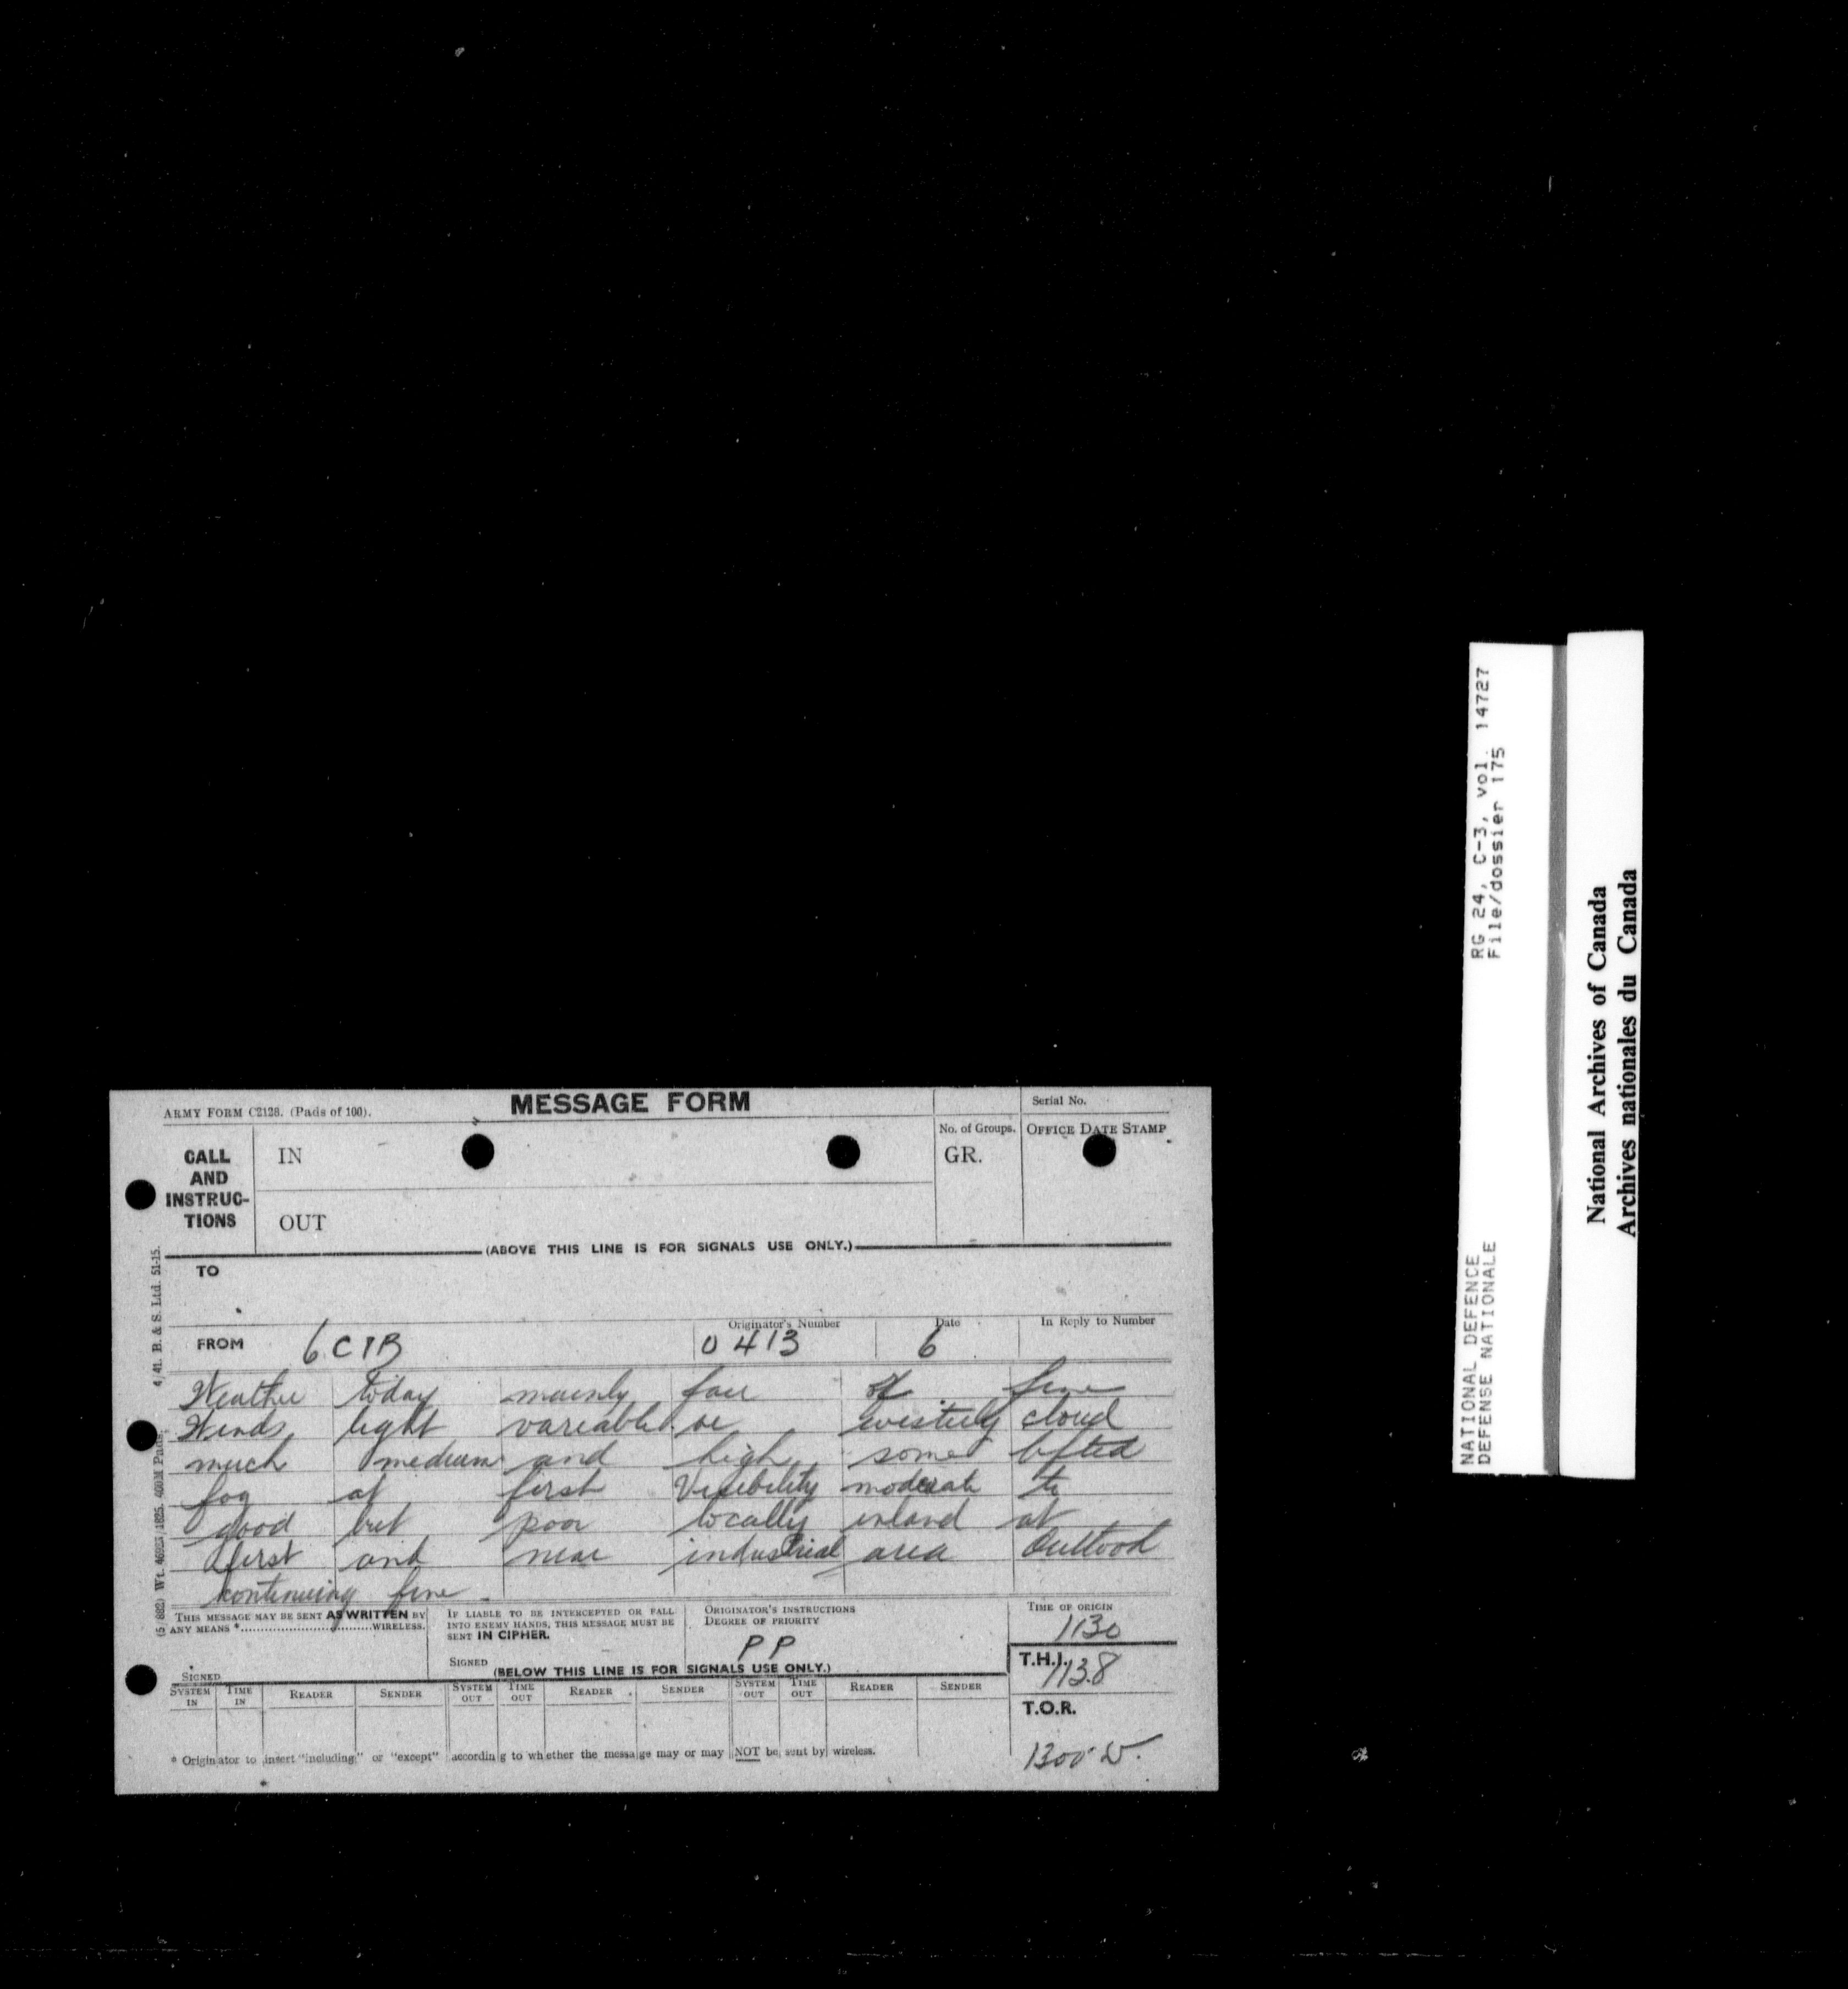 ARMY FORM C2128. (Pads of 100).
MESSAGE FORM
Serial No.
CALL
AND
INSTRUC-
TIONS
IN
OUT
No. of Groups.
GR.
OFFICE DATE STAMP
(ABOVE THIS LINE IS FOR SIGNALS USE ONLY.)
TO
FROM 6 CIB
Originator's Number
0413
Date
6
In Reply to Number
Weather today mainly fair or fine
Winds light variable or westerly cloud
much medium and high some lifted
fog at first Visibility moderate to
good but poor locally inland at
first and near industrial area Outlook
continuing fine
THIS MESSAGE MAY BE SENT AS WRITTEN BY
ANY MEANS * WIRELESS.
SIGNED
IF LIABLE TO BE INTERCEPTED OR FALL
INTO ENEMY HANDS, THIS MESSAGE MUST BE
SENT IN CIPHER.
SIGNED
ORIGINATOR'S INSTRUCTIONS
DEGREE OF PRIORITY
PP
TIME OF ORIGIN
1130
(BELOW THIS LINE IS FOR SIGNALS USE ONLY.)
T.H.I.
1138
T.O.R.
SYSTEM IN TIME IN READER SENDER SYSTEM OUT TIME OUT READER SENDER SYSTEM OUT TIME OUT READER SENDER
* Originator to insert "including" or "except" according to whether the message may or may NOT be sent by wireless.
1300
(5 882) Wt. 400M Pads. 4/41. B. & S. Ltd. 51-15.
NATIONAL DEFENCE RG 24, C-3, vol. 14727
DEFENSE NATIONALE File/dossier 175
National Archives of Canada
Archives nationales du Canada